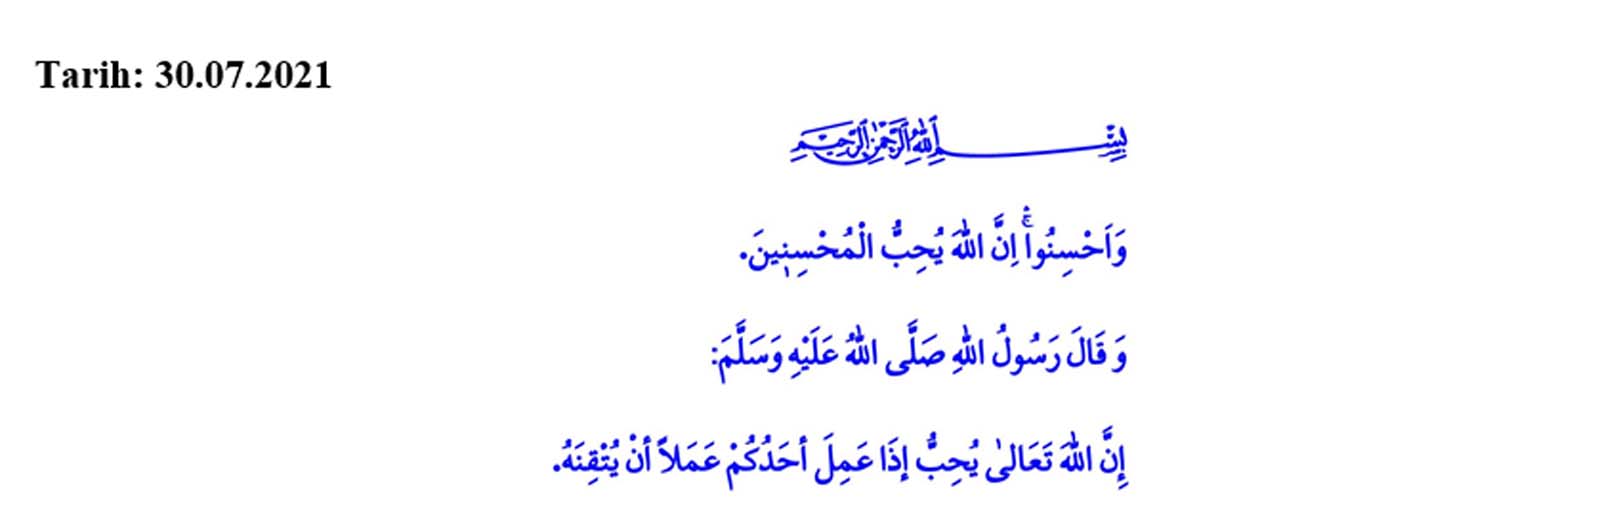 Tarih: 30.07.2021
بِسْمِ اللّٰهِ الرَّحْمٰنِ الرَّحِيمِ
وَاَحْسِنُواۚۛ اِنَّ اللّٰهَ يُحِبُّ الْمُحْسِنٖينَ.
وَ قَالَ رَسُولُ اللّٰهِ صَلَّى اللّٰهُ عَلَيْهِ وَسَلَّمَ:
إِنَّ اللّٰهَ تَعَالٰى يُحِبُّ إِذَا عَمِلَ أَحَدُكُمْ عَمَلاً أَنْ يُتْقِنَهُ.